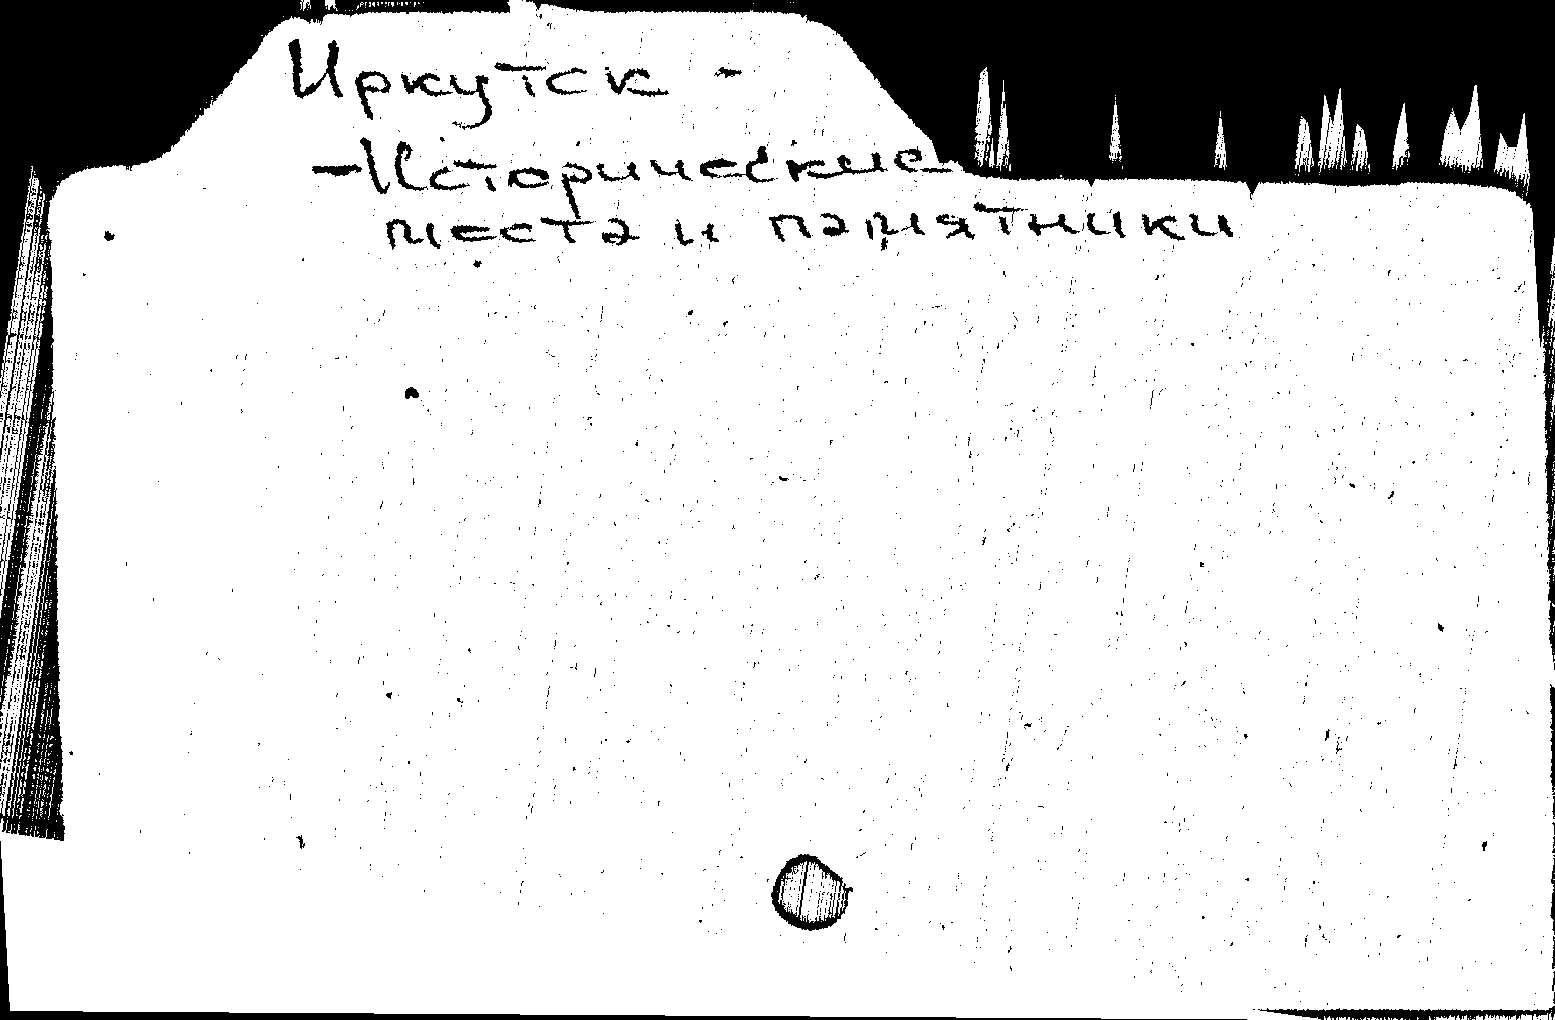 Иркутск -
-Исторические
места и памятники